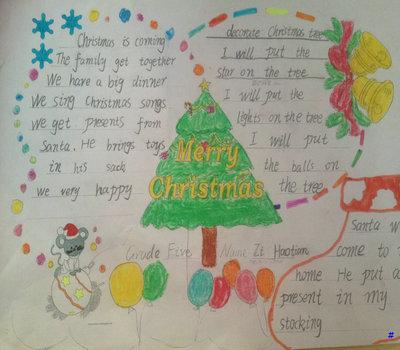 Christmas is coming
The family get together
We have a big dinner
We sing Christmas songs
we get presents from
Santa. He brings toys
in his sack
we very happy
decorate Christmas tree
I will put the
star on the tree
I will put the
lights on the tree
I will put
the balls on
the tree
Merry
Christmas
Grade Five Name Haotian
Santa
come to
home He put
present in my
stocking
#